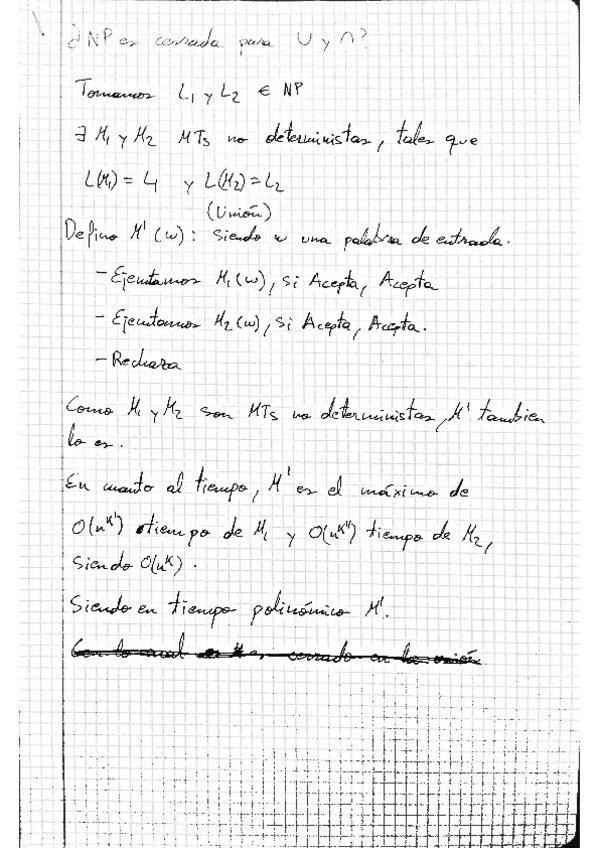 ¿NP es cerrada para ∪ y ∩?
Tomamos L₁ y L₂ ∈ NP
∃ M₁ y M₂ MTs no deterministas, tales que
L(M₁) = L₁ y L(M₂) = L₂
(Unión)
Defino M'(w): siendo w una palabra de entrada.
- Ejecutamos M₁(w), si Acepta, Acepta
- Ejecutamos M₂(w), si Acepta, Acepta.
- Rechaza
Como M₁ y M₂ son MTs no deterministas, M' tambien
lo es.
En cuanto al tiempo, M' es el máximo de
O(nᵏ') tiempo de M₁ y O(nᵏ'') tiempo de M₂,
siendo O(nᵏ).
Siendo en tiempo polinómico M'.
Con lo cual es cerrado en la unión